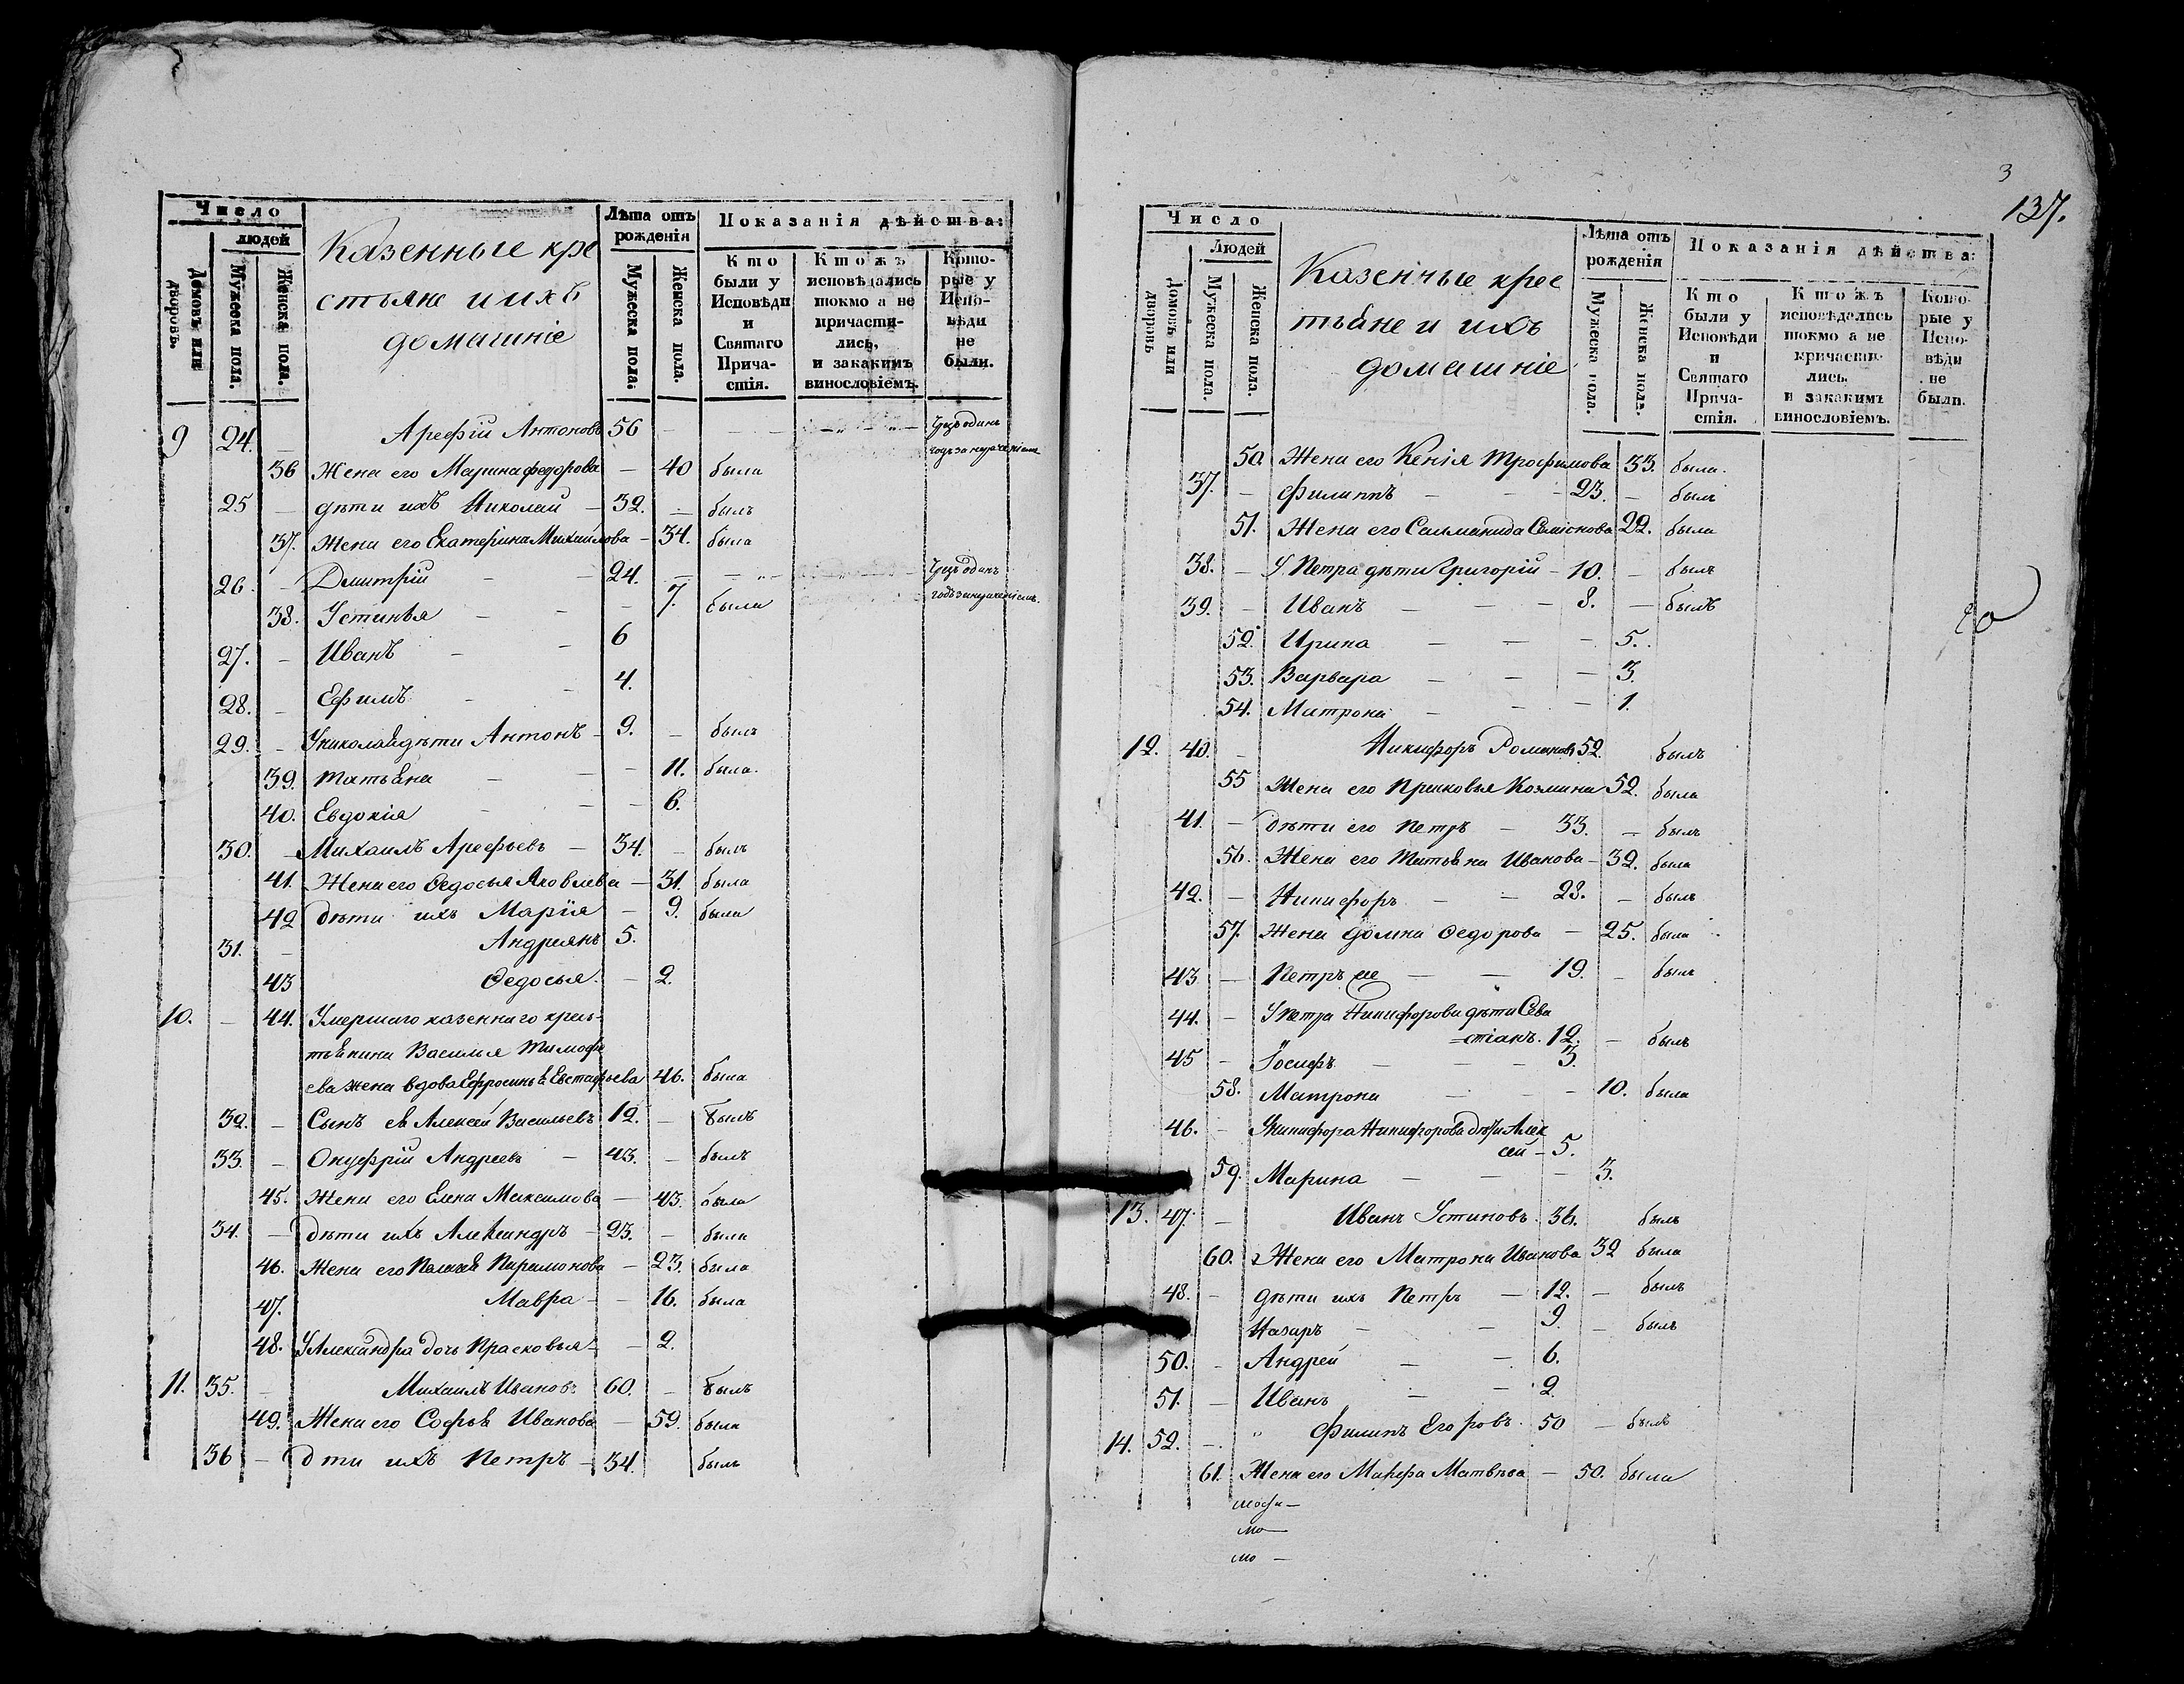 Число
людей
Домовъ или дворовъ.
Мужеска пола.
Женска пола.
Казенные кре
стьяне и ихъ
домашніе
Лѣта отъ рожденія
Мужеска пола.
Женска пола.
Показанія дѣйства:
Кто были у Исповѣди и Святаго Причастія.
Ктожъ исповѣдались токмо а не причастились, и закакимъ винословіемъ.
Которые у Исповѣди не были.
9 24. — Арефій Антоновъ 56 — — —
36 Жена его Марина федорова — 40 была
25 — дѣти ихъ Николай — 32. — былъ
37. Жена его Екатерина Михайлова — 34. была
26. — Дмитрій — 24. — —
38. Устинья — — 7. была
27. — Иванъ — — 6
28. — Ефимъ — — 4.
29. — Униколая дѣти Антонъ — 9. — былъ
39. Татьяна — — — 11. была.
40. Евдокія — — — 6.
30. — Михаилъ Арефьевъ — 34. — былъ
41. Жена его Ѳедосья Яковлева — 31. была
42 дѣти ихъ Марія — 9. была
31. — Андреянъ 5.
43 Ѳедосья. — 2.
10. — 44. Умершаго казеннаго крес-
тьянина Василья Тимофе
ева жена вдова Ефросинья Евстафьева 46. была
32. — Сынъ ея Алексей Васильевъ 12. — былъ
33. — Онуфрій Андреевъ — 43. — былъ
45. Жена его Елена Максимова — 43. была
34. — дѣти ихъ Александръ — 23. — была
46. Жена его Пелагея Парамонова — 23. была
47. Мавра — — 16. была
48. У Александра дочь Прасковья — — 2.
11. 35. — Михаилъ Ивановъ 60. — былъ
49. Жена его Софья Иванова — 59. была
36 — Дти ихъ Петръ — 34. былъ
3
137.
Число
Людей
Домовъ или дворовъ
Мужеска пола.
Женска пола.
Казенные крес
тьяне и ихъ
домашніе
Лѣта отъ рожденія
Мужеска пола.
Женска пола.
Показанія дѣйства:
Кто были у Исповѣди и Святаго Причастія.
Ктожъ исповѣдались токмо а не причастились. и закакимъ винословіемъ.
Которые у Исповѣди не были.
50. Жена его Ксенія Трофимова 33. была.
37. — Филиппъ — — 23. — былъ
51. Жена его 22. была
38. — У Петра дѣти Григорій — 10. — былъ
39. — Иванъ — — — 8. — былъ
52. Ирина — — — 5.
53. Варвара — — — 3.
54. Матрона — — — 1.
12. 40. — Никифоръ Романовъ 52. былъ
55 Жена его Прасковья Козмина 52. была
41. — дѣти его Петръ — 33. — былъ
56. Жена его Татьяна Иванова — 32. была
42. — Никифоръ — — 28. — былъ
57. Жена Домна Ѳедорова — 25. была
43 — Петръ же — — 19. — былъ
44. — У Петра Никифорова дѣти Сева
=стіанъ. 12. — былъ
45 — Іосифъ — — — 3.
58. Матрона — — — 10. была
46. — У Никифора Никифорова дѣти Алек
сей — 5.
59. Марина — — — 3.
13. 47. — Иванъ Устиновъ. 36. былъ
60. Жена его Матрона Иванова 32 была
48. — дѣти ихъ Петръ — 12. — былъ
Назаръ — — 9. — былъ
50. — Андрей — — 6.
51. — Иванъ — — 2.
14. 52. — „ Филипъ Егоровъ. 50 — былъ
61. Жена его Марфа Матвѣева — 50. была